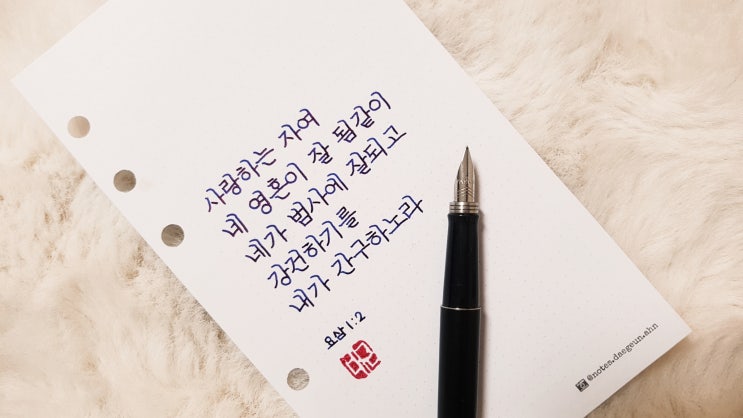 사랑하는 자여
네 영혼이 잘 됨같이
네가 범사에 잘되고
강건하기를
내가 간구하노라
요삼 1:2
@notes.daegeun.ahn